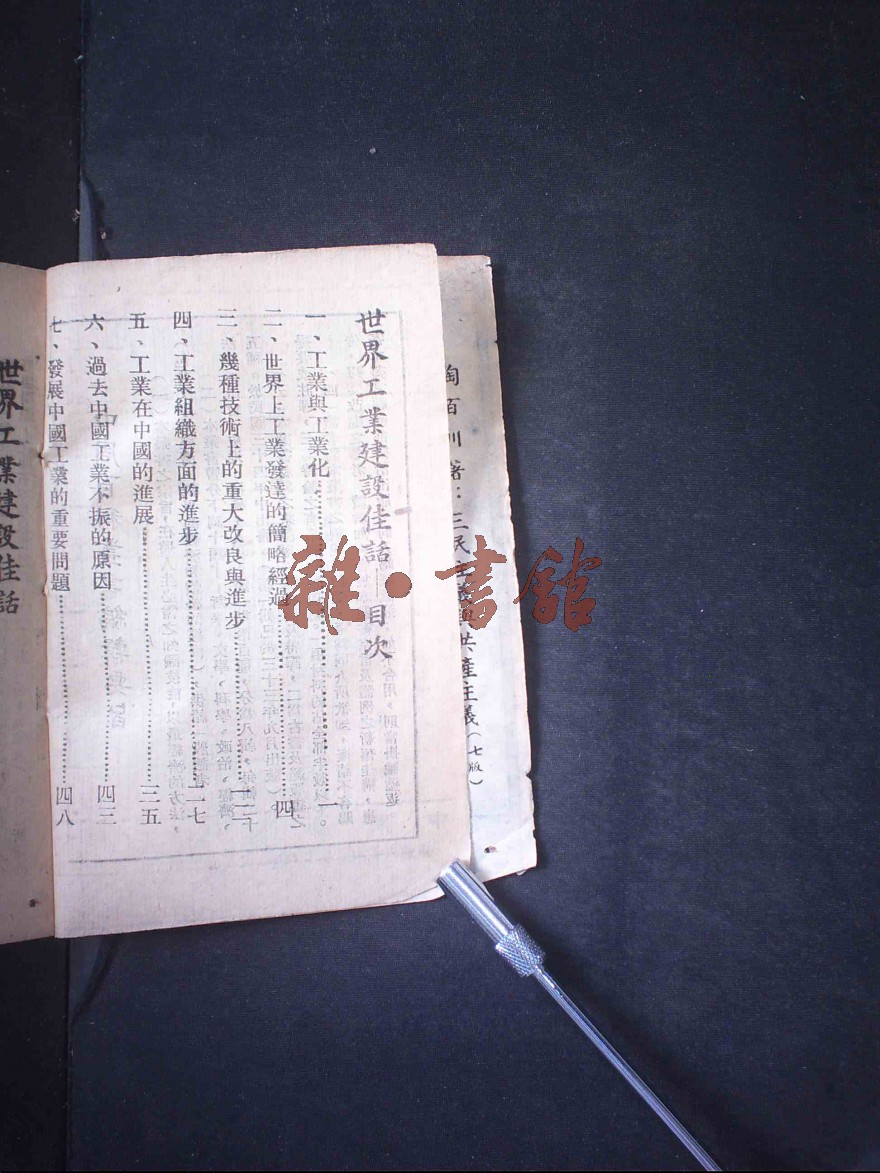 陶百川著：三民主義與共產主義（七版）
世界工業建設佳話 目次
一、工業與工業化…………一
二、世界上工業發達的簡略經過…………四
三、幾種技術上的重大改良與進步…………一二
四、工業組織方面的進步…………二七
五、工業在中國的進展…………三五
六、過去中國工業不振的原因…………四三
七、發展中國工業的重要問題…………四八
世界工業建設佳話
雜·書館